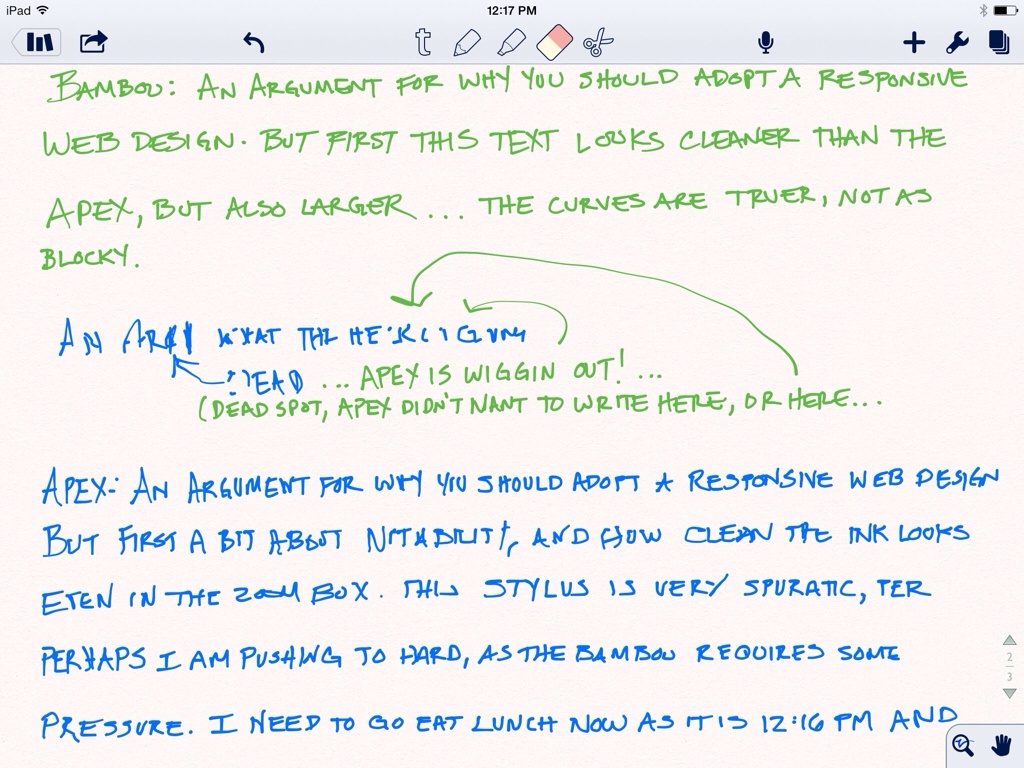 iPad 12:17 PM
t
BAMBOU: AN ARGUMENT FOR WHY YOU SHOULD ADOPT A RESPONSIVE
WEB DESIGN. BUT FIRST THIS TEXT LOOKS CLEANER THAN THE
APEX, BUT ALSO LARGER... THE CURVES ARE TRUER, NOT AS
BLOCKY.
AN WHAT THE
...APEX IS WIGGIN OUT!...
(DEAD SPOT, APEX DIDN'T WANT TO WRITE HERE, OR HERE...
APEX: AN ARGUMENT FOR WHY YOU SHOULD ADOPT A RESPONSIVE WEB DESIGN
BUT FIRST A BIT ABOUT NOTABILITY, AND HOW CLEAN THE INK LOOKS
EVEN IN THE ZOOM BOX. THIS STYLUS IS VERY SPURATIC,
PERHAPS I AM PUSHING TO HARD, AS THE BAMBOU REQUIRES SOME
PRESSURE. I NEED TO GO EAT LUNCH NOW AS IT IS 12:16 PM AND
2
3